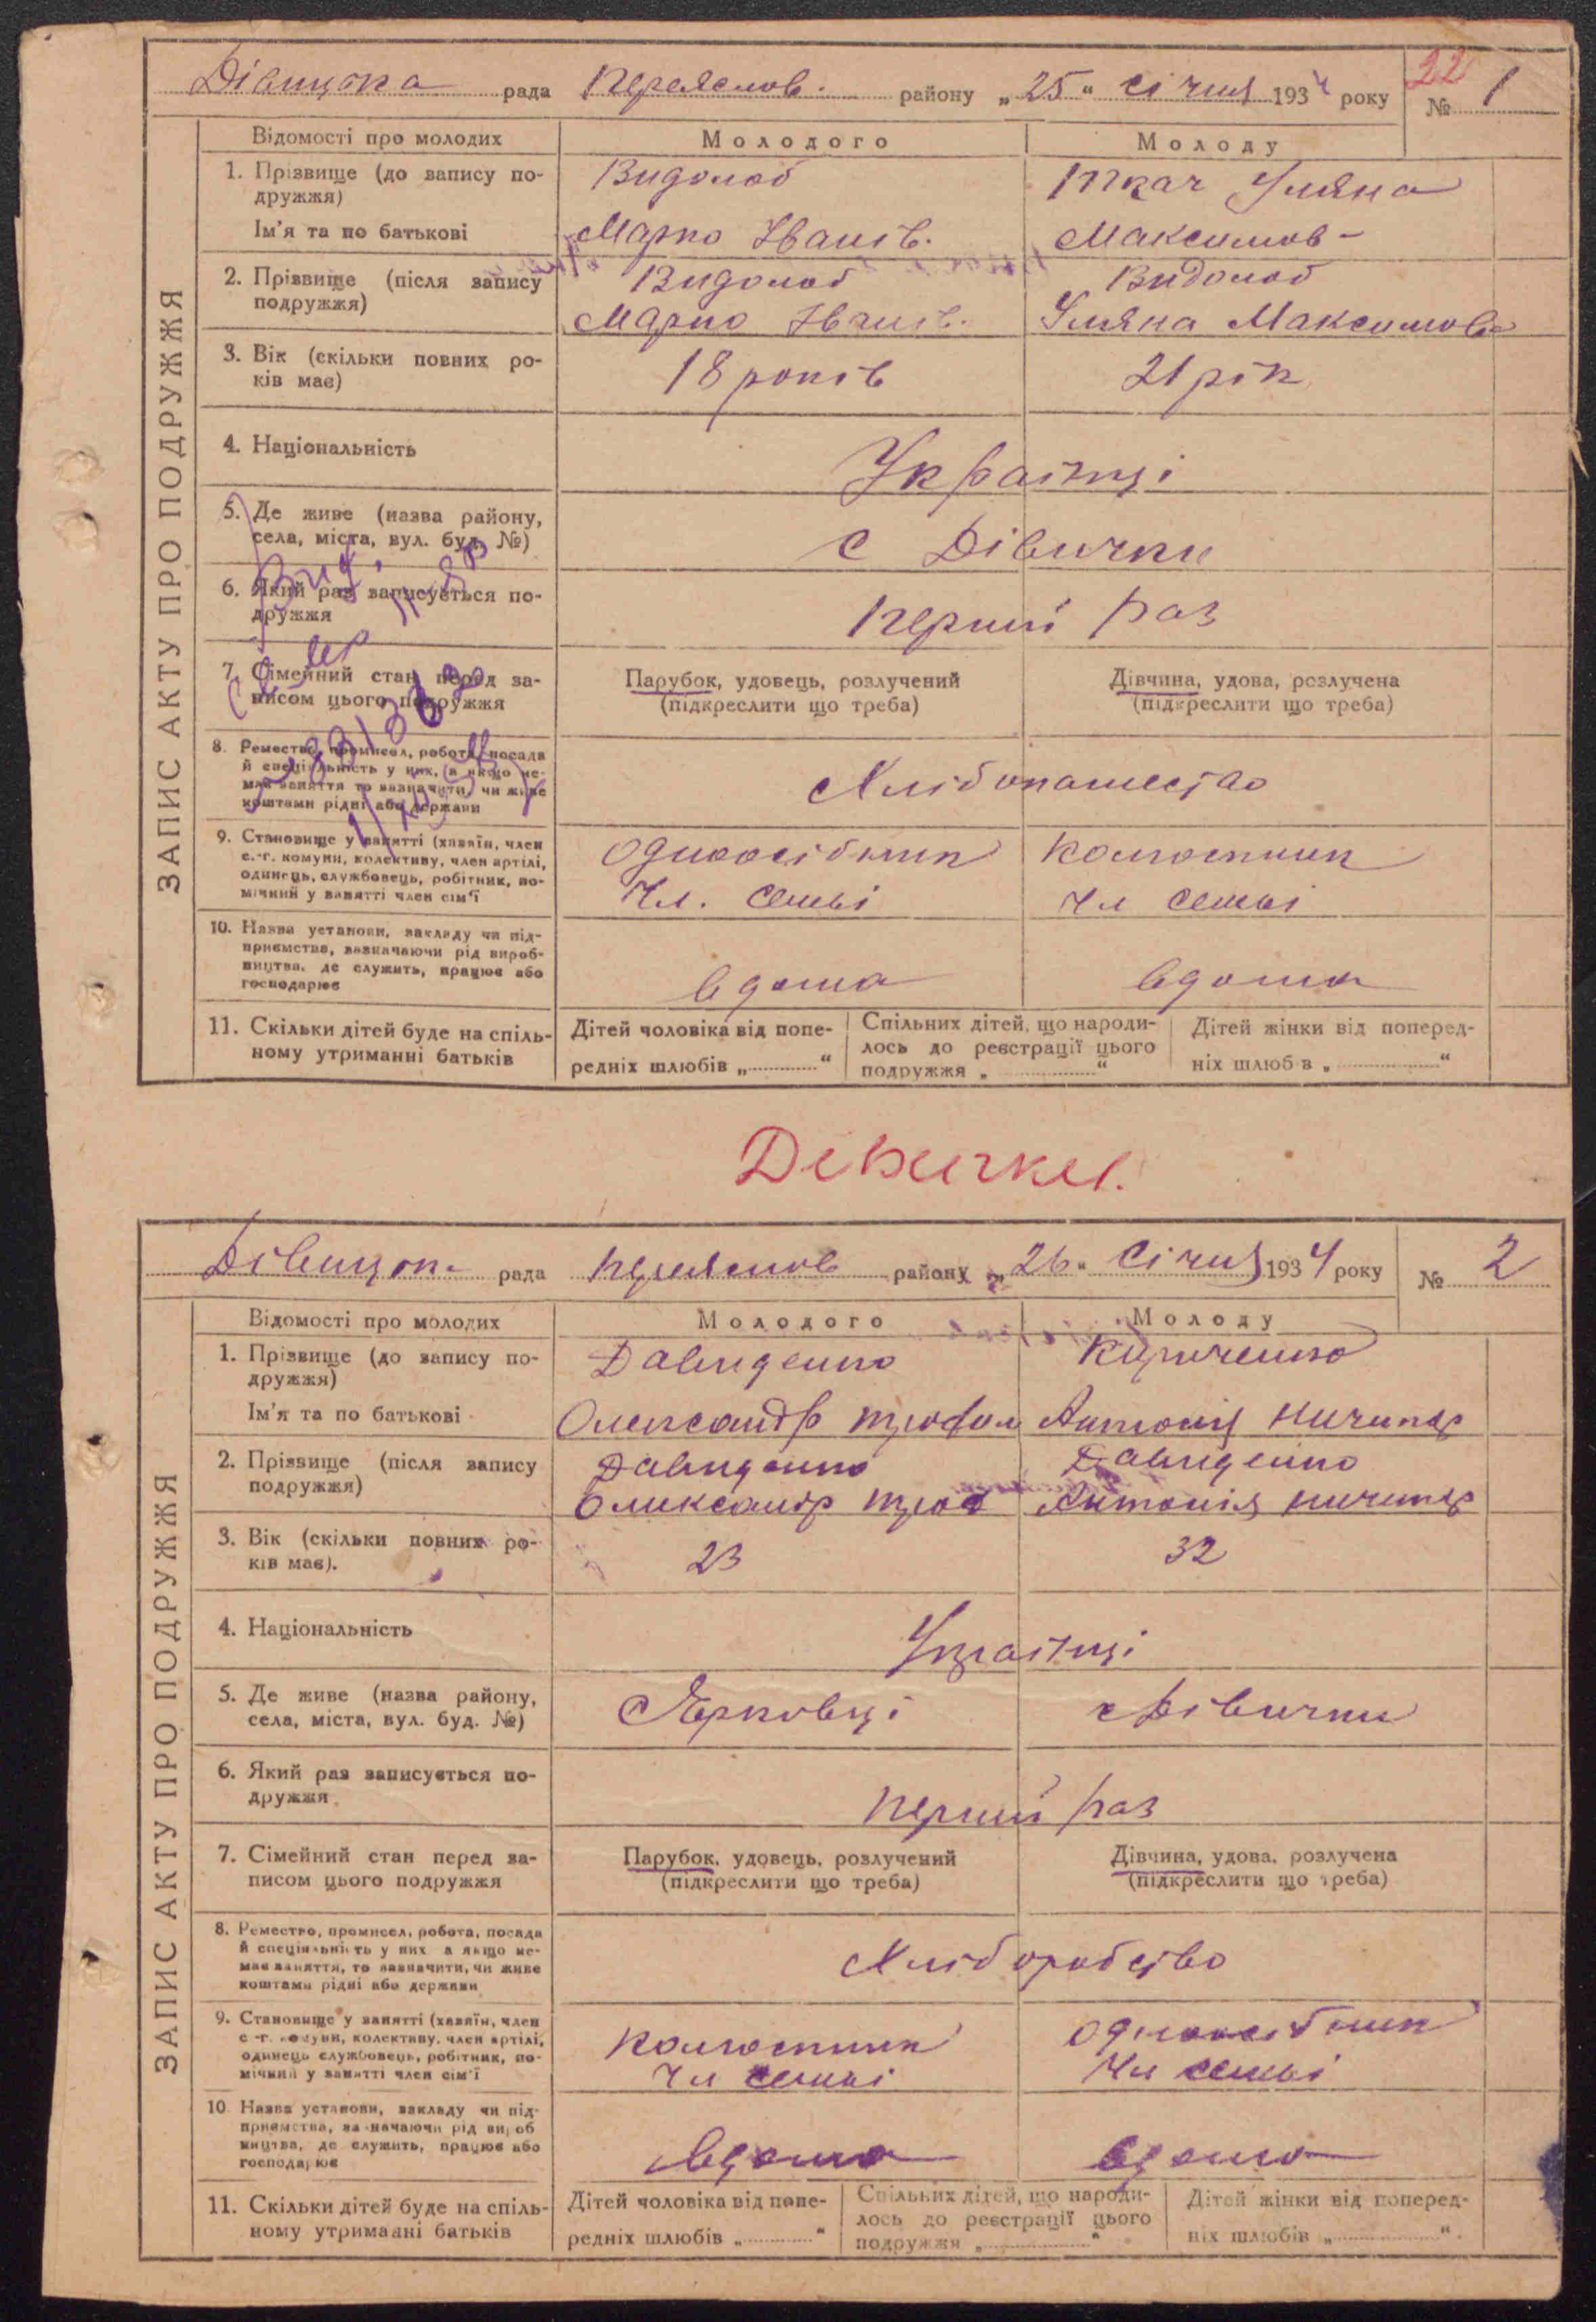 Дівицька рада Переяслов. району „25“ січня 1934 року
22
№ 1
ЗАПИС АКТУ ПРО ПОДРУЖЖЯ
Відомості про молодих Молодого Молоду
1. Прізвище (до запису по-
дружжя)
Видолоб Ткач Уляна
Ім'я та по батькові Марко Іванів. Максимов-
2. Прізвище (після запису
подружжя)
Видолоб Видолоб
Марко Іванів. Уляна Максимов
3. Вік (скільки повних ро-
ків має)
18 років 21 рік
4. Національність Українці
5. Де живе (назва району,
села, міста, вул. буд. №)
с Дівички
6. Який раз записується по-
дружжя
перший раз
7. Сімейний стан перед за-
писом цього подружжя
Парубок, удовець, розлучений Дівчина, удова, розлучена
(підкреслити що треба) (підкреслити що треба)
8. Ремество, промисел, робота, посада
й спеціяльність у них, а якщо не-
має заняття то зазначити, чи живе
коштами рідні або держави
Хлібопашество
9. Становище у занятті (хазяїн, член
с.-г. комуни, колективу, член артілі,
одинець, службовець, робітник, по-
мічний у занятті член сім'ї
одноосібник колгоспник
Чл. семьі Чл семьі
10. Назва установи, закладу чи під-
приємства, зазначаючи рід вироб-
ництва, де служить, працює або
господарює
вдома вдома
11. Скільки дітей буде на спіль-
ному утриманні батьків
Дітей чоловіка від попе-
редніх шлюбів „ “
Спільних дітей, що народи-
лось до реєстрації цього
подружжя „ “
Дітей жінки від поперед-
ніх шлюб в „ “
Девички.
Дівицьк. рада переяслов району „26“ Січня 1934 року
№ 2
ЗАПИС АКТУ ПРО ПОДРУЖЖЯ
Відомості про молодих Молодого Молоду
1. Прізвище (до запису по-
дружжя)
Давиденко Кириченко
Ім'я та по батькові Олександр Трофим Антонія Ничипор
2. Прізвище (після запису
подружжя)
Давиденко Давиденко
Олександр Троф Антонія Ничипор
3. Вік (скільки повних ро-
ків має).
23 32
4. Національність Українці
5. Де живе (назва району,
села, міста, вул. буд. №)
с Дівички
6. Який раз записується по-
дружжя
перший раз
7. Сімейний стан перед за-
писом цього подружжя
Парубок, удовець, розлучений Дівчина, удова, розлучена
(підкреслити що треба) (підкреслити що треба)
8. Ремество, промисел, робота, посада
й спеціяльність у них а якщо не-
має заняття, то зазначити, чи живе
коштами рідні або держави
Хліборобство
9. Становище у занятті (хазяїн, член
с-г. комуни, колективу, член артілі,
одинець службовець, робітник, по-
мічний у занятті член сім'ї
колгоспник одноосібник
Чл семьі Чл семьі
10 Назва установи, закладу чи під-
приємства, зазначаючи рід вироб
ництва, де служить, працює або
господарює
вдома вдома
11. Скільки дітей буде на спіль-
ному утриманні батьків
Дітей чоловіка від попе-
редніх шлюбів „ “
Спільних дітей, що народи-
лось до реєстрації цього
подружжя „ “
Дітей жінки від поперед-
ніх шлюбів „ “.